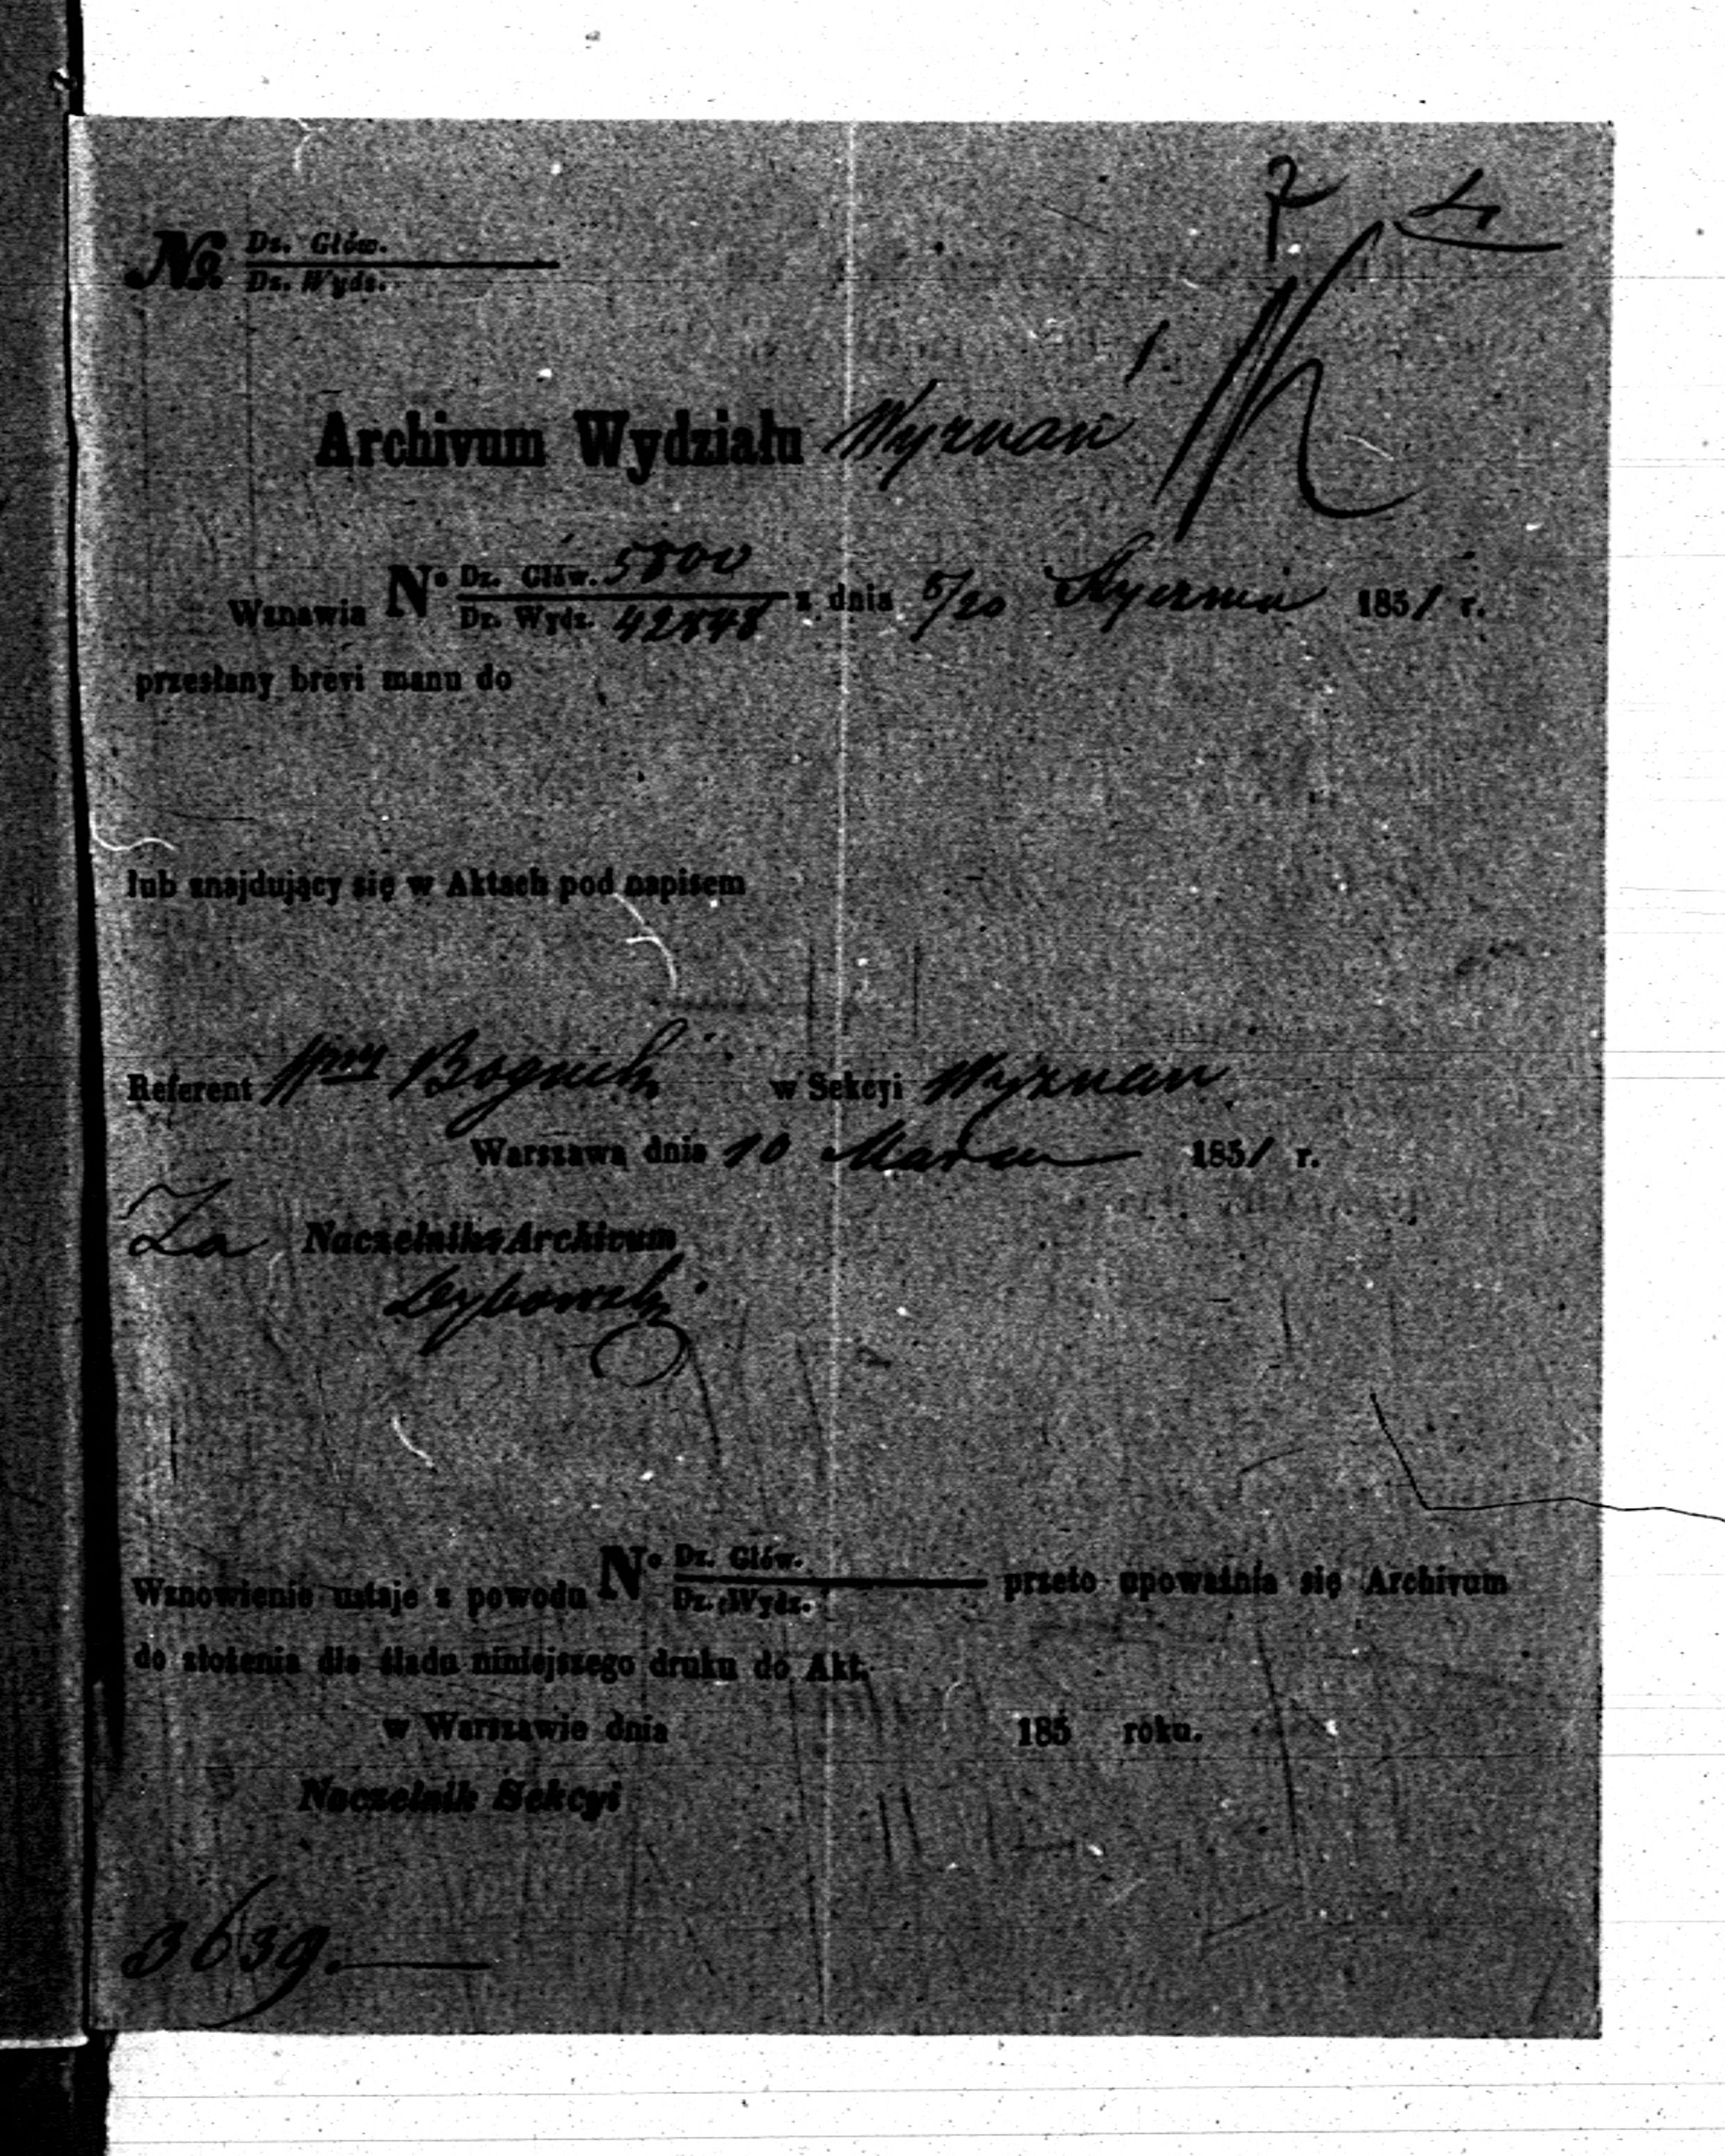 7 4
№ Dz. Głów.
Dz. Wydz.
1.
Archivum Wydziału Wyznań
Wznawia No Dz. Głów. 5800 z dnia 8/20 Stycznia 1851 r.
Dz. Wydz. 42848
przesłany brevi manu do
lub znajdujący się w Aktach pod napisem
Referent w Sekcyi Wyznań
Warszawa dnia 10 Marca 1851 r.
Za Naczelnika Archivum
Wznowienie ustaje z powodu No Dz. Głów. przeto upoważnia się Archivum
Dz. Wydz.
do złożenia dla śladu niniejszego druku do Akt.
w Warszawie dnia 185 roku.
Naczelnik Sekcyi
3639.